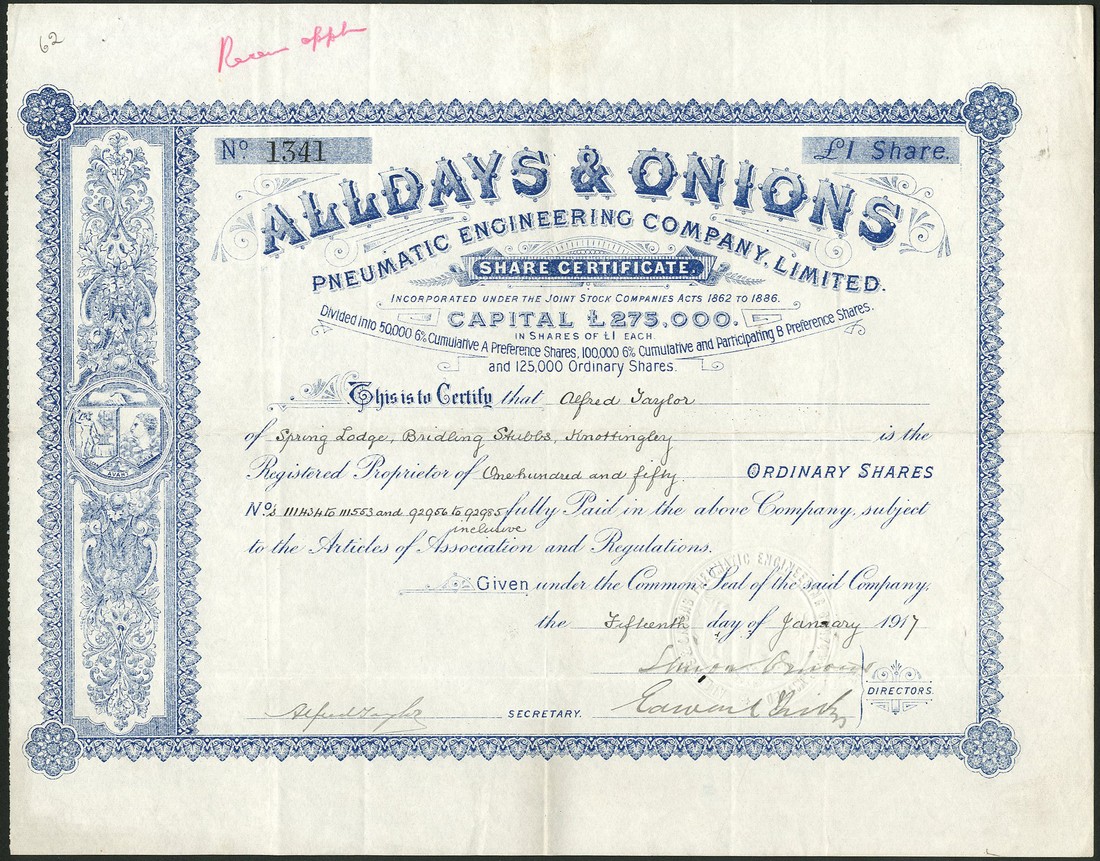 62
№ 1341
£1 Share.
ALLDAYS & ONIONS
PNEUMATIC ENGINEERING COMPANY, LIMITED.
SHARE CERTIFICATE.
INCORPORATED UNDER THE JOINT STOCK COMPANIES ACTS 1862 TO 1886.
CAPITAL £275,000.
IN SHARES OF £1 EACH.
Divided into 50,000 6% Cumulative A Preference Shares, 100,000 6% Cumulative and Participating B Preference Shares.
and 125,000 Ordinary Shares.
This is to Certify that Alfred Taylor
of Spring Lodge, Bridling Stubbs, Knottingley is the
Registered Proprietor of One hundred and fifty ORDINARY SHARES
No's 111434 to 111553 and 92956 to 92985 fully Paid in the above Company, subject
inclusive
to the Articles of Association and Regulations.
Given under the Common Seal of the said Company,
the Fifteenth day of January 1917
DIRECTORS.
Alfred Taylor SECRETARY.